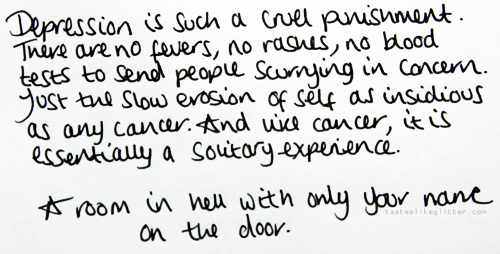 Depression is such a cruel punishment.
There are no fevers, no rashes, no blood
tests to send people scurrying in concern.
Just the slow erosion of self as insidious
as any cancer. And like cancer, it is
essentially a solitary experience.
A room in hell with only your name
on the door.
tasteslikeglitter.com